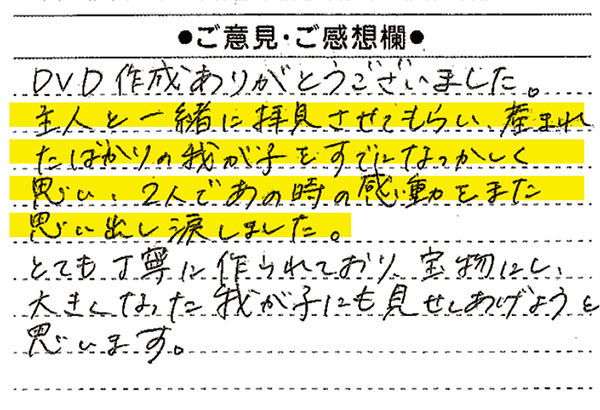 ●ご意見・ご感想欄●
DVD作成ありがとうございました。
主人と一緒に拝見させてもらい、産まれ
たばかりの我が子をすでになつかしく
思い、2人であの時の感動をまた
思い出し涙しました。
とても丁寧に作られており、宝物にし、
大きくなった我が子にも見せてあげようと
思います。